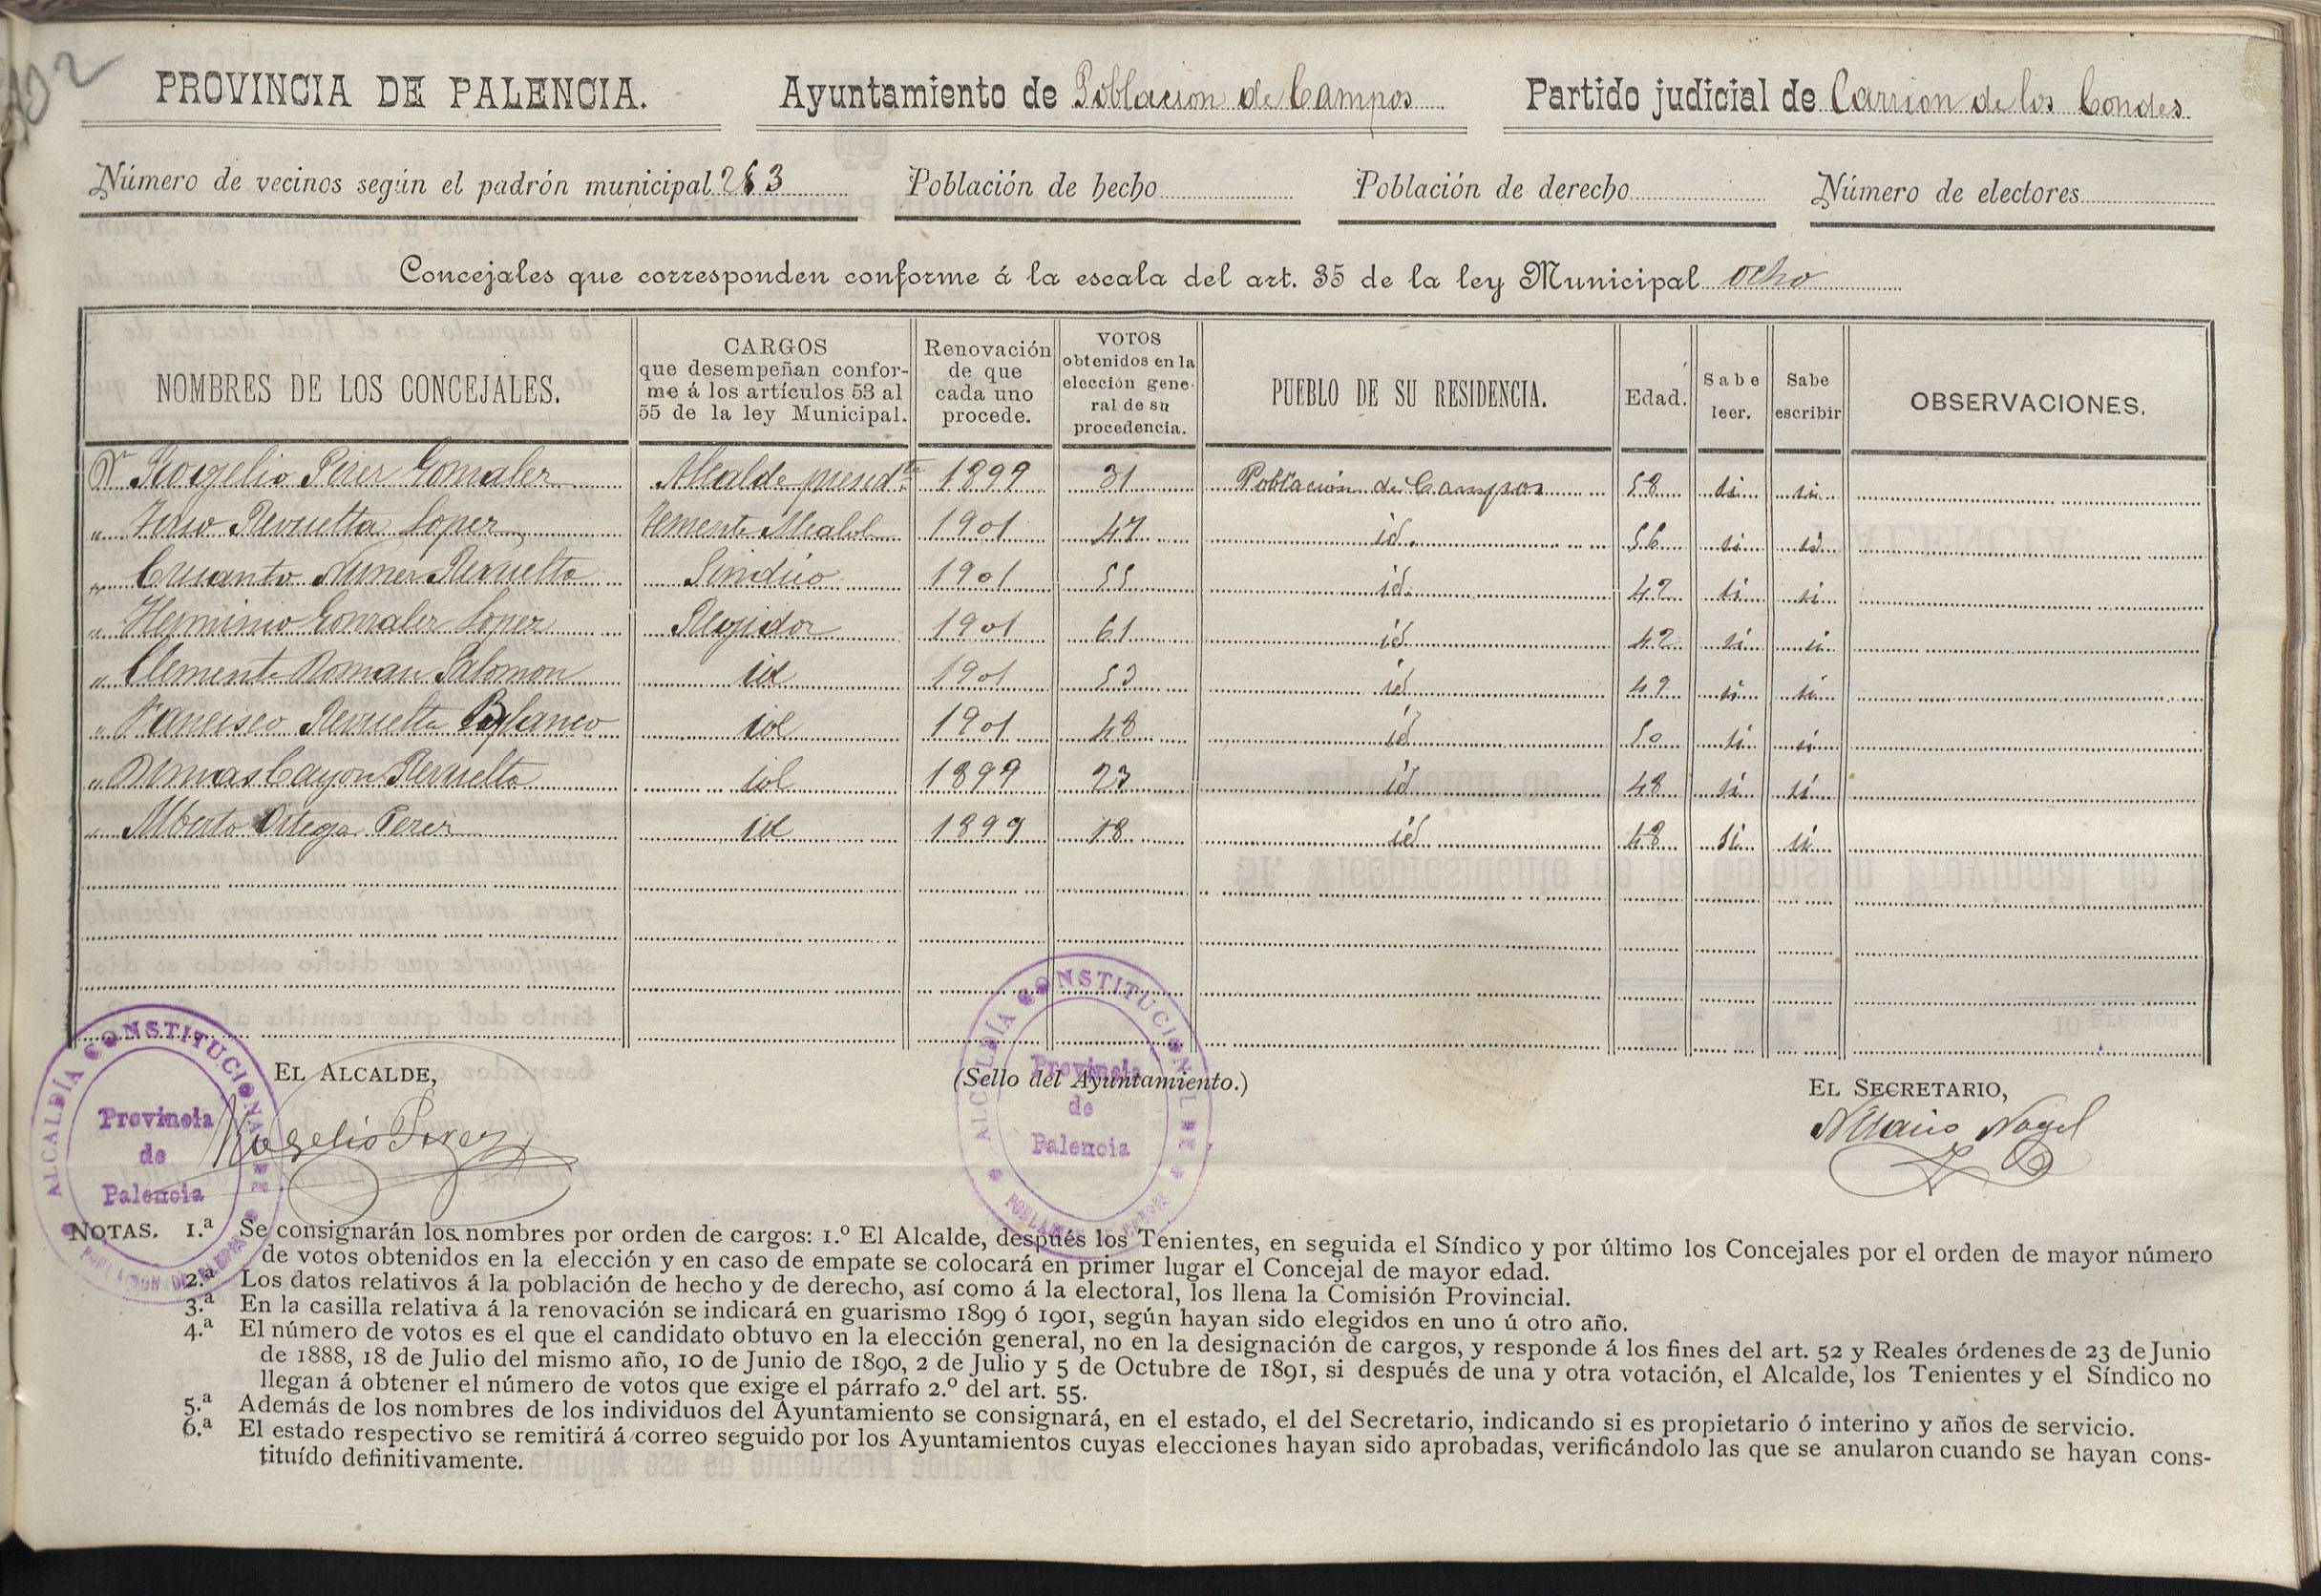 102
PROVINCIA DE PALENCIA. Ayuntamiento de Poblacion de Campos Partido judicial de Carrion de los Condes
Número de vecinos según el padrón municipal 263 Población de hecho Población de derecho Número de electores
Concejales que corresponden conforme á la escala del art. 35 de la ley Municipal ocho
NOMBRES DE LOS CONCEJALES.
CARGOS
que desempeñan confor-
me á los artículos 53 al
55 de la ley Municipal.
Renovación
de que
cada uno
procede.
VOTOS
obtenidos en la
elección gene-
ral de su
procedencia.
PUEBLO DE SU RESIDENCIA.
Edad.
Sabe
leer.
Sabe
escribir
OBSERVACIONES.
Dn Rogelio Perez Gonzalez Alcalde presidte 1899 31 Poblacion de Campos 58 si si
" Revuelta Lopez Teniente Alcalde 1901 47 id. 56 si si
" Nuñez Revuelta Sindico 1901 55 id. 42 si si
" Herminio Gonzalez Lopez Regidor 1901 61 id 42 si si
" Clemente Roman Salomon id 1901 53 id 49 si si
" Francisco Revuelta Blanco id 1901 48 id 50 si si
" Dimas Cayon Revuelta id 1899 23 id 48 si si
" Alberto Ortega Perez id 1899 18 id 48 si si
EL ALCALDE,
Rogelio Perez
ALCALDÍA CONSTITUCIONAL DE
Provincia
de
Palencia
POBLACION DE CAMPOS
(Sello del Ayuntamiento.)
ALCALDÍA CONSTITUCIONAL DE
Provincia
de
Palencia
POBLACION DE CAMPOS
EL SECRETARIO,
Nogal
NOTAS. 1.ª Se consignarán los nombres por orden de cargos: 1.º El Alcalde, después los Tenientes, en seguida el Síndico y por último los Concejales por el orden de mayor número
de votos obtenidos en la elección y en caso de empate se colocará en primer lugar el Concejal de mayor edad.
2.ª Los datos relativos á la población de hecho y de derecho, así como á la electoral, los llena la Comisión Provincial.
3.ª En la casilla relativa á la renovación se indicará en guarismo 1899 ó 1901, según hayan sido elegidos en uno ú otro año.
4.ª El número de votos es el que el candidato obtuvo en la elección general, no en la designación de cargos, y responde á los fines del art. 52 y Reales órdenes de 23 de Junio
de 1888, 18 de Julio del mismo año, 10 de Junio de 1890, 2 de Julio y 5 de Octubre de 1891, si después de una y otra votación, el Alcalde, los Tenientes y el Síndico no
llegan á obtener el número de votos que exige el párrafo 2.º del art. 55.
5.ª Además de los nombres de los individuos del Ayuntamiento se consignará, en el estado, el del Secretario, indicando si es propietario ó interino y años de servicio.
6.ª El estado respectivo se remitirá á correo seguido por los Ayuntamientos cuyas elecciones hayan sido aprobadas, verificándolo las que se anularon cuando se hayan cons-
tituído definitivamente.